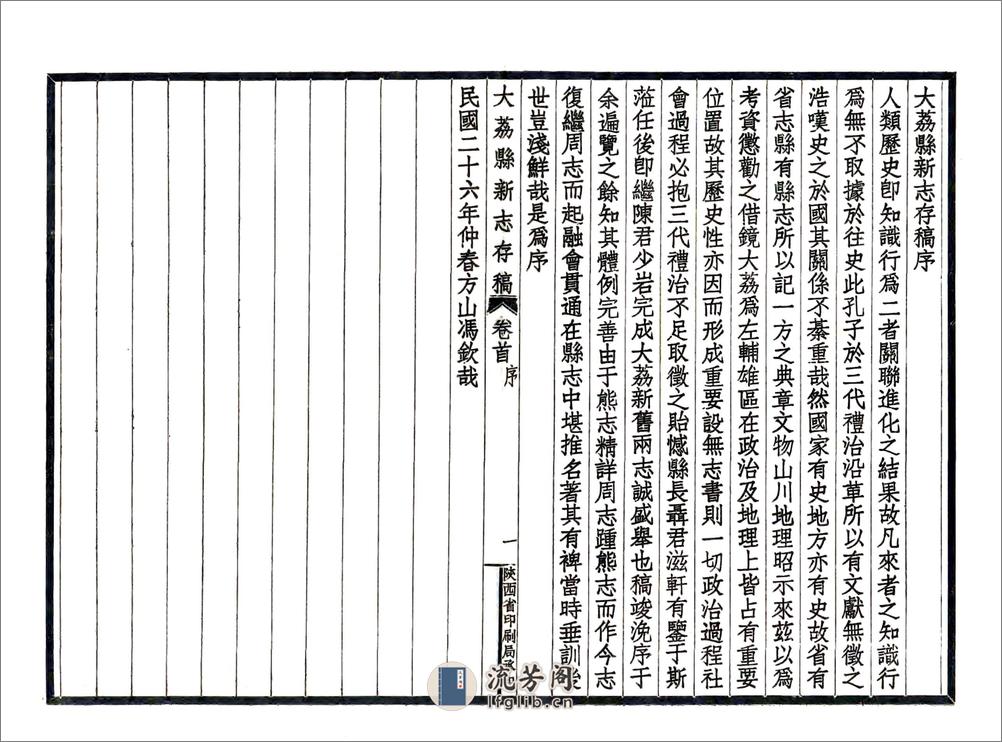 大荔縣新志存稿序
人類歷史卽知識行爲二者關聯進化之結果故凡來者之知識行
爲無不取據於往史此孔子於三代禮治沿革所以有文獻無徵之
浩嘆史之於國其關係不綦重哉然國家有史地方亦有史故省有
省志縣有縣志所以記一方之典章文物山川地理昭示來茲以爲
考資懲勸之借鏡大荔爲左輔雄區在政治及地理上皆占有重要
位置故其歷史性亦因而形成重要設無志書則一切政治過程社
會過程必抱三代禮治不足取徵之貽憾縣長聶君滋軒有鑒于斯
蒞任後卽繼陳君少岩完成大荔新舊兩志誠盛舉也稿竣浼序于
余遍覽之餘知其體例完善由于熊志精詳周志踵熊志而作今志
復繼周志而起融會貫通在縣志中堪推名著其有裨當時垂訓後
世豈淺鮮哉是爲序
大荔縣新志存稿 卷首 序 一 陝西省印刷局
民國二十六年仲春方山馮欽哉
流芳阁
lfglib.cn